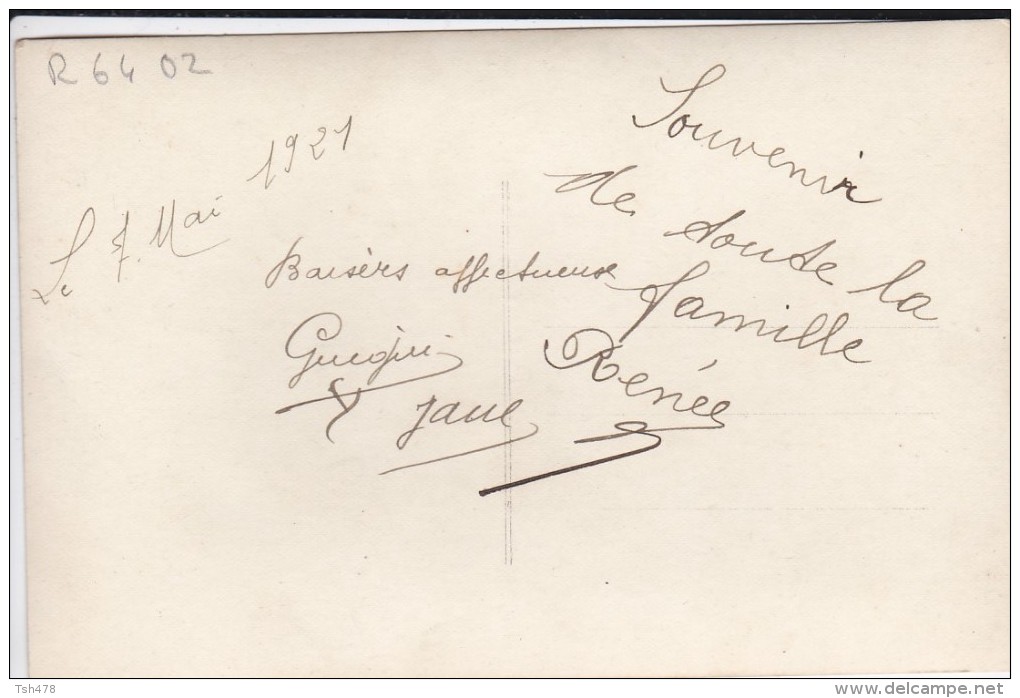 R 64 02
Le 7. Mai 1921
Baisers affectueux
Jane
Souvenir
de toute la
famille
Renée
Tsh478
www.delcampe.net